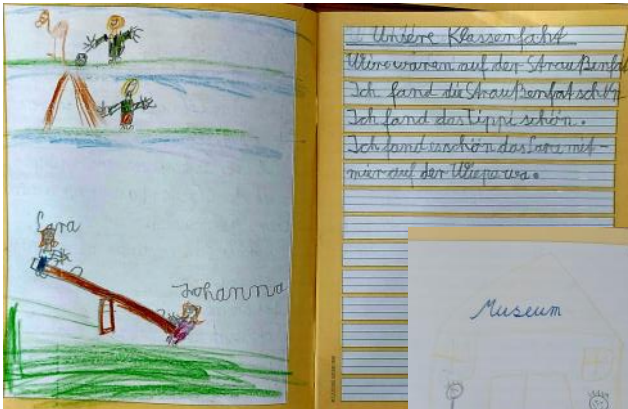 Lara
Johanna
Unsere Klassenfahrt
Wire waren auf der Straußenfat
Ich fand die Straußenfat schön
Ich fand das Tippi schön.
Ich fand es schön das Lara mit-
mier auf der Wiepe wa.
Museum